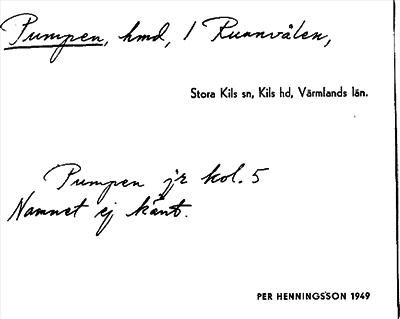 Pumpen, hmd, 1 Runnvålen,
Stora Kils sn, Kils hd, Värmlands län.
Pumpen jr kol. 5
Namnet ej känt.
PER HENNINGSSON 1949